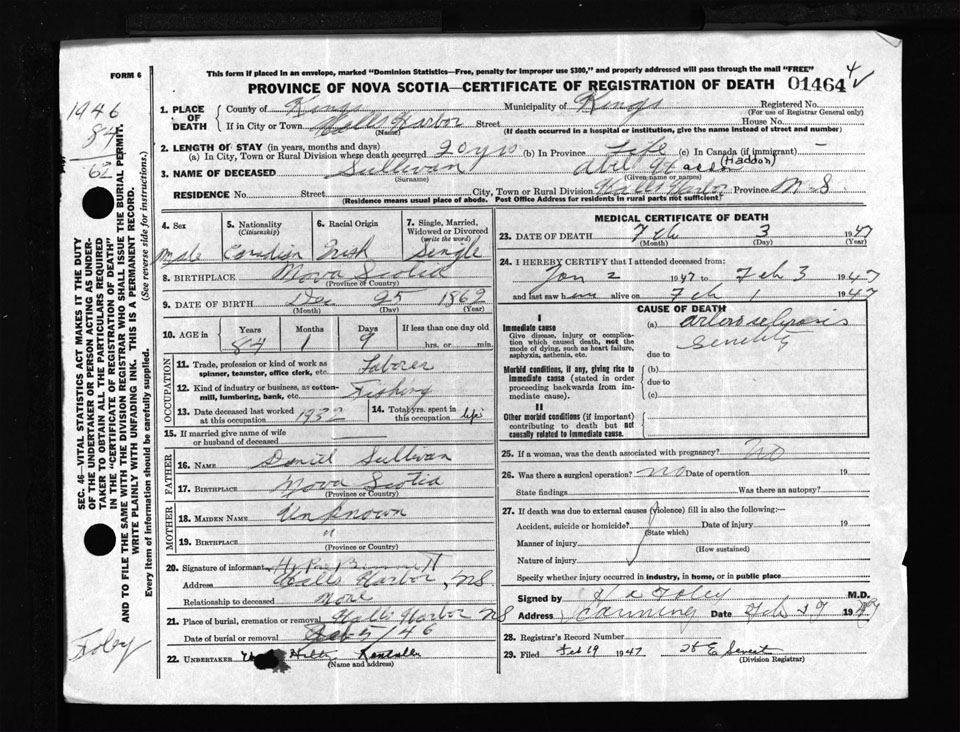 This form if placed in an envelope, marked "Dominion Statistics—Free, penalty for improper use $300," and properly addressed will pass through the mail "FREE"
FORM 6
PROVINCE OF NOVA SCOTIA—CERTIFICATE OF REGISTRATION OF DEATH 01464
1946
84
62
SEC. 46—VITAL STATISTICS ACT MAKES IT THE DUTY
OF THE UNDERTAKER OR PERSON ACTING AS UNDER-
TAKER TO OBTAIN ALL THE PARTICULARS REQUIRED
IN THE "CERTIFICATE OF REGISTRATION OF DEATH"
AND TO FILE THE SAME WITH THE DIVISION REGISTRAR WHO SHALL ISSUE THE BURIAL PERMIT.
WRITE PLAINLY WITH UNFADING INK. THIS IS A PERMANENT RECORD.
Every item of information should be carefully supplied. (See reverse side for instructions.)
Foley
1. PLACE OF DEATH
County of Kings Municipality of Kings Registered No.
(For use of Registrar General only)
If in City or Town Halls Harbor Street House No.
(Name) (If death occurred in a hospital or institution, give the name instead of street and number)
2. LENGTH OF STAY (in years, months and days)
(a) In City, Town or Rural Division where death occurred 20 yrs (b) In Province Life (c) In Canada (if immigrant) —
(Haddon)
3. NAME OF DECEASED Sullivan
(Surname) (Given name or names)
RESIDENCE No. Street City, Town or Rural Division Halls Harbor Province N-S
(Residence means usual place of abode. Post Office Address for residents in rural parts not sufficient)
4. Sex
Male
5. Nationality
(Citizenship)
Canadian
6. Racial Origin
Irish
7. Single, Married, Widowed or Divorced
(write the word)
Single
8. BIRTHPLACE Nova Scotia
(Province or Country)
9. DATE OF BIRTH Dec 25 1862
(Month) (Day) (Year)
10. AGE in Years Months Days If less than one day old
84 1 9 hrs. or min.
OCCUPATION
11. Trade, profession or kind of work as
spinner, teamster, office clerk, etc. Laborer
12. Kind of industry or business, as cotton-
mill, lumbering, bank, etc. Fishing
13. Date deceased last worked
at this occupation 1932
14. Total yrs. spent in
this occupation life
15. If married give name of wife
or husband of deceased
FATHER
16. NAME Daniel Sullivan
17. BIRTHPLACE Nova Scotia
(Province or Country)
MOTHER
18. MAIDEN NAME Unknown
19. BIRTHPLACE "
(Province or Country)
20. Signature of informant
Address Halls Harbor, NS
Relationship to deceased None
21. Place of burial, cremation or removal Halls Harbor NS
Date of burial or removal Feb 5/46
22. UNDERTAKER
(Name and address)
MEDICAL CERTIFICATE OF DEATH
23. DATE OF DEATH Feb 3 1947
(Month) (Day) (Year)
24. I HEREBY CERTIFY that I attended deceased from:
Jan 2 1947 to Feb 3 1947
and last saw him alive on Feb 1 1947
CAUSE OF DEATH
I
Immediate cause
Give disease, injury or complica-
tion which caused death, not the
mode of dying, such as heart failure,
asphyxia, asthenia, etc.
(a) arterosclerosis
senility
due to
Morbid conditions, if any, giving rise to
immediate cause (stated in order
proceeding backwards from im-
mediate cause).
(b)
due to
(c)
II
Other morbid conditions (if important)
contributing to death but not
causally related to immediate cause.
25. If a woman, was the death associated with pregnancy? no
26. Was there a surgical operation? no Date of operation 19
State findings Was there an autopsy?
27. If death was due to external causes (violence) fill in also the following:—
Accident, suicide or homicide? Date of injury 19
(State which)
Manner of injury
(How sustained)
Nature of injury
Specify whether injury occurred in industry, in home, or in public place
Signed by Foley M.D.
Address Canning Date Feb 1947
28. Registrar's Record Number
29. Filed Feb 19 1947
(Division Registrar)